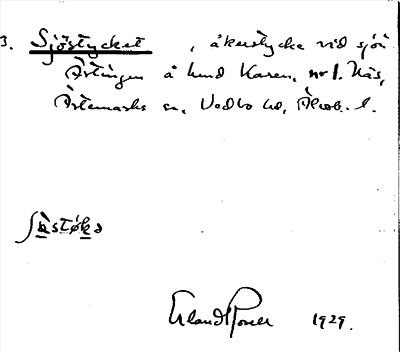 3. Sjöstycket, åkerstycke vid sjön
Ärtingen å hmd Karen, nr 1. Näs,
Ärtemarks sn, Vedbo hd, Älvsb. l.
Erland Rosell 1929.